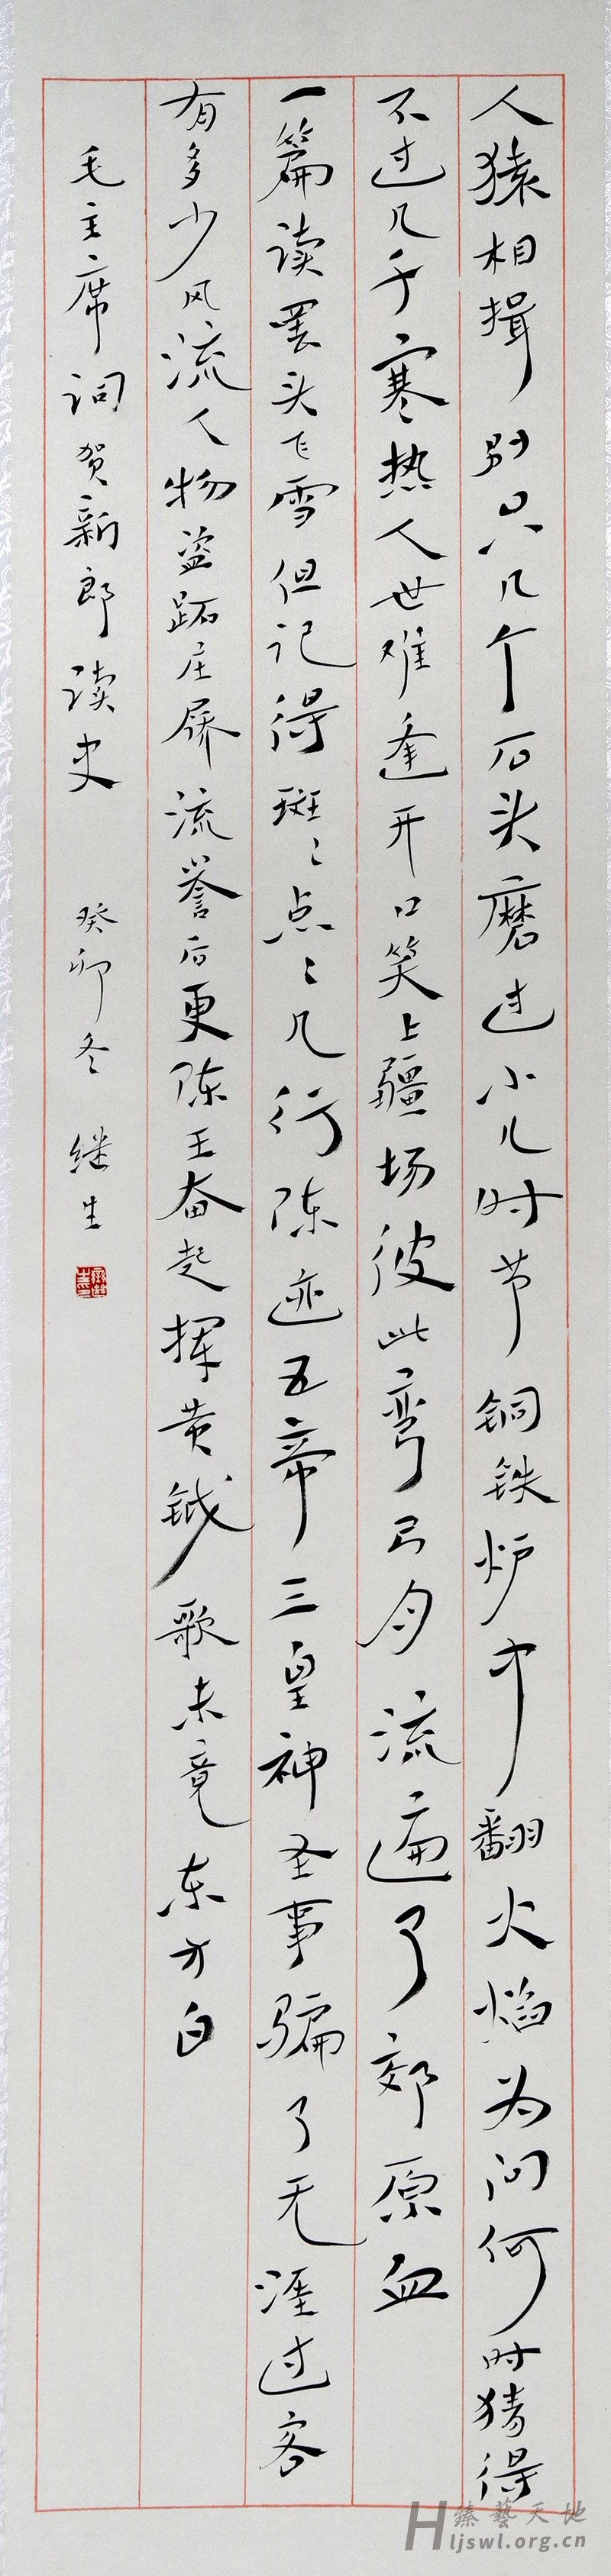 人猿相揖别只几个石头磨过小儿时节铜铁炉中翻火焰为问何时猜得
不过几千寒热人世难逢开口笑上疆场彼此弯弓月流遍了郊原血
一篇读罢头飞雪但记得斑〻点〻几行陈迹五帝三皇神圣事骗了无涯过客
有多少风流人物盗跖庄屩流誉后更陈王奋起挥黄钺歌未竟东方白
毛主席词贺新郎读史 癸卯冬 继生
臻藝天地
Hljswl.org.cn